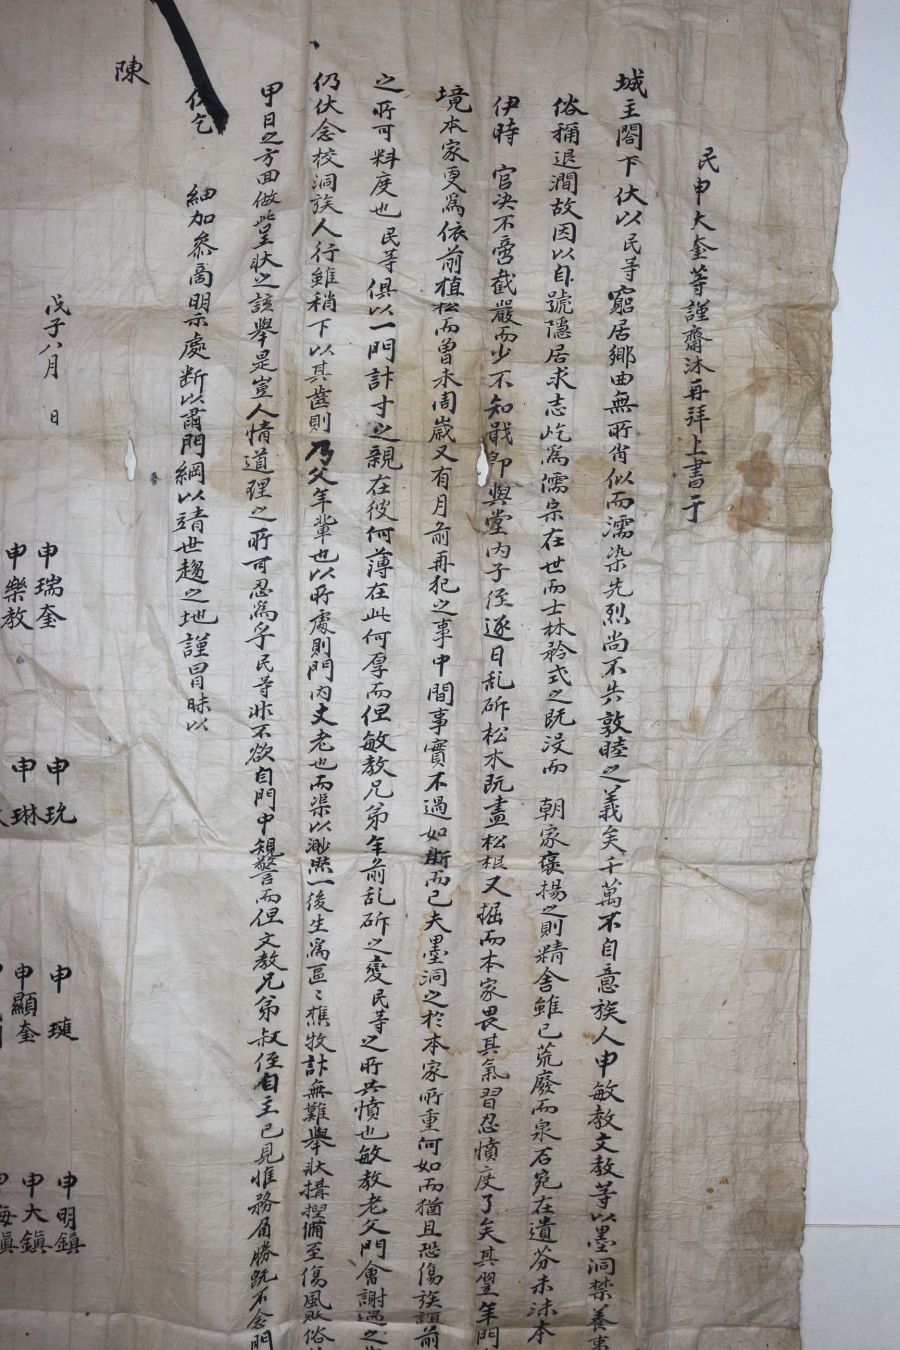 民申大奎等謹齋沐再拜上書于
城主閤下伏以民等窮居鄉曲無所肖似而濡染先烈尚不失敦睦之義矣千萬不自意族人申敏教文教等以墨洞禁養事
俗稱退澗故因以自號隱居求志屹爲儒宗在世而士林矜式之既沒而 朝家褒揚之則精舍雖已荒廢而泉石宛在遺芬未沫本
伊時 官決不啻截嚴而少不知戢即與堂內子侄逐日乱斫松木既盡松根又掘而本家畏其氣習忍憤度了矣其翌年門
境本家更爲依前植松而曾未周歲又有月前再犯之事中間事實不過如斯而已夫墨洞之於本家所重何如而猶且恐傷族誼前
之所可料度也民等俱以一門計寸之親在彼何薄在此何厚而但敏教兄弟年前乱斫之變民等之所共憤也敏教老父門會謝過之
仍伏念校洞族人行雖稍下以其齒則乃父年輩也以所處則門內丈老也而渠以渺然一後生爲區〻樵牧計無難舉狀構捏備至傷風敗俗
甲日之方面做此呈狀之該舉是豈人情道理之所可忍爲乎民等非不欲自門中規警而但文教兄弟叔侄自主己見惟務角勝既不念門
伏乞 細加參商明示處斷以肅門綱以靖世趨之地謹冒昧以
陳
戊子八月 日
申瑞奎 申玧 申璉 申明鎮
申樂教 申琳 申顯奎 申大鎮